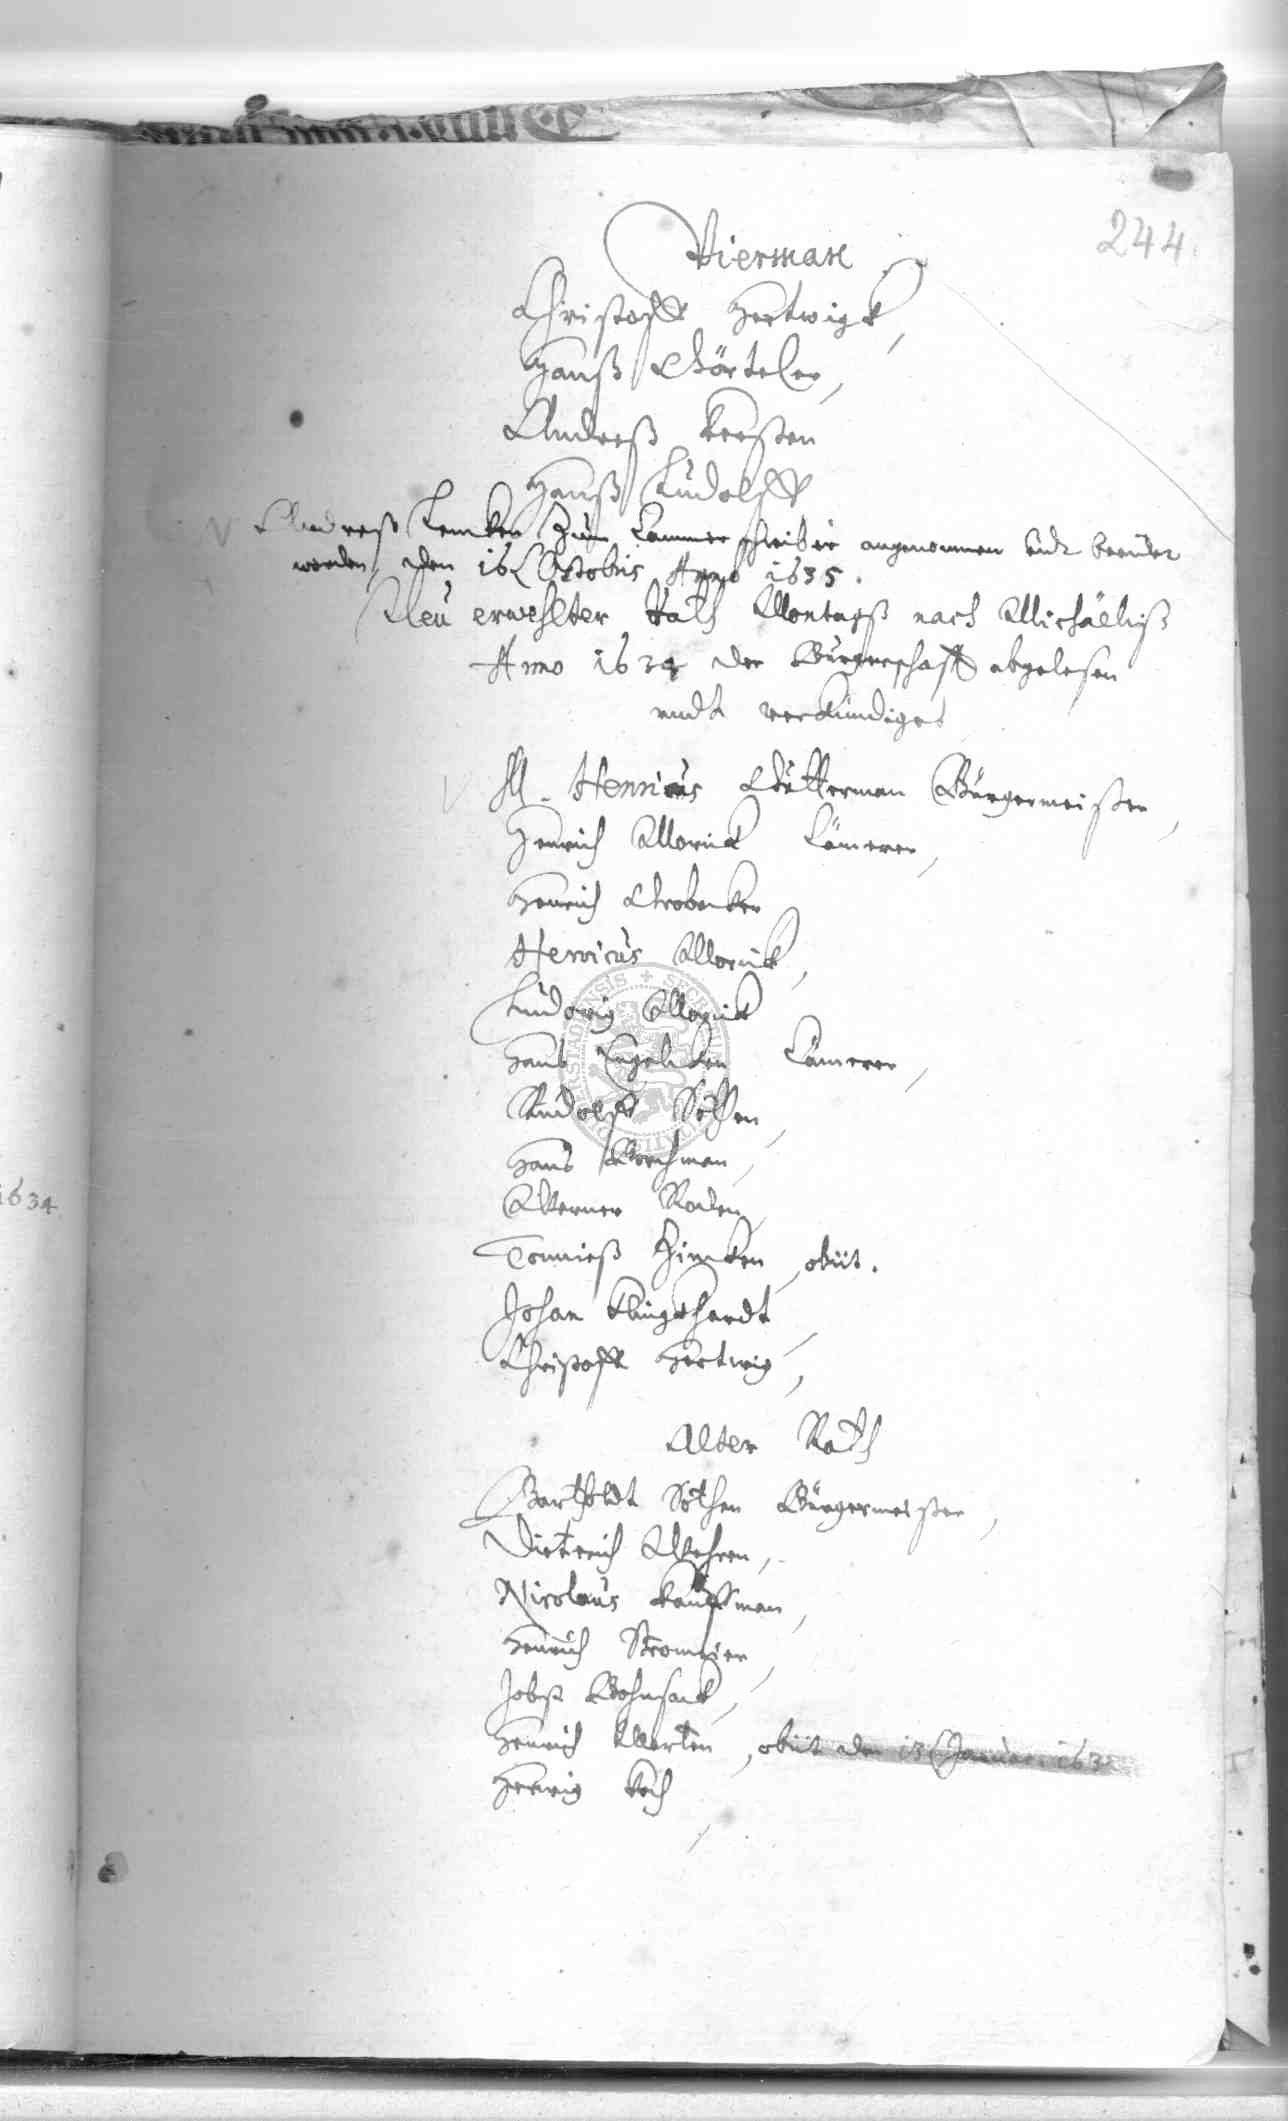 244
Vierman
Christoff Hertwigk,
Hanß Dörteler,
Andreß Kersten
Hanß Ludolff
Andreß Lemken Zum Cammerschreiber angenommen undt beeidet
worden, den 16 Octobris Anno 1635.
Neu erwehlter Rath Montagß nach Michäeliß
Anno 1634 der Bürgerschafft abgelesen
undt verkündiget
M. Henricus Bürgermeister,
Henrich Morick Cämerer,
Henrich Strobecker
Henricus Morick,
Ludowig Morick
Hans Engelcken Cämerer,
Rudolff Söthen,
Hans Borchman,
Werner Roden,
Tonnieß Zimken, obiit.
Johan Klingkhardt,
Christoff Hertwig,
Alter Rath
Bartholdt Söthen Bürgermeister,
Dietreich Wehren,
Nicolaus Kauffman,
Henrich Stromeier,
Jobst Bohnsack,
Henrich Merten, obiit den 13 Januar. 163
Herwig Koch,
1634